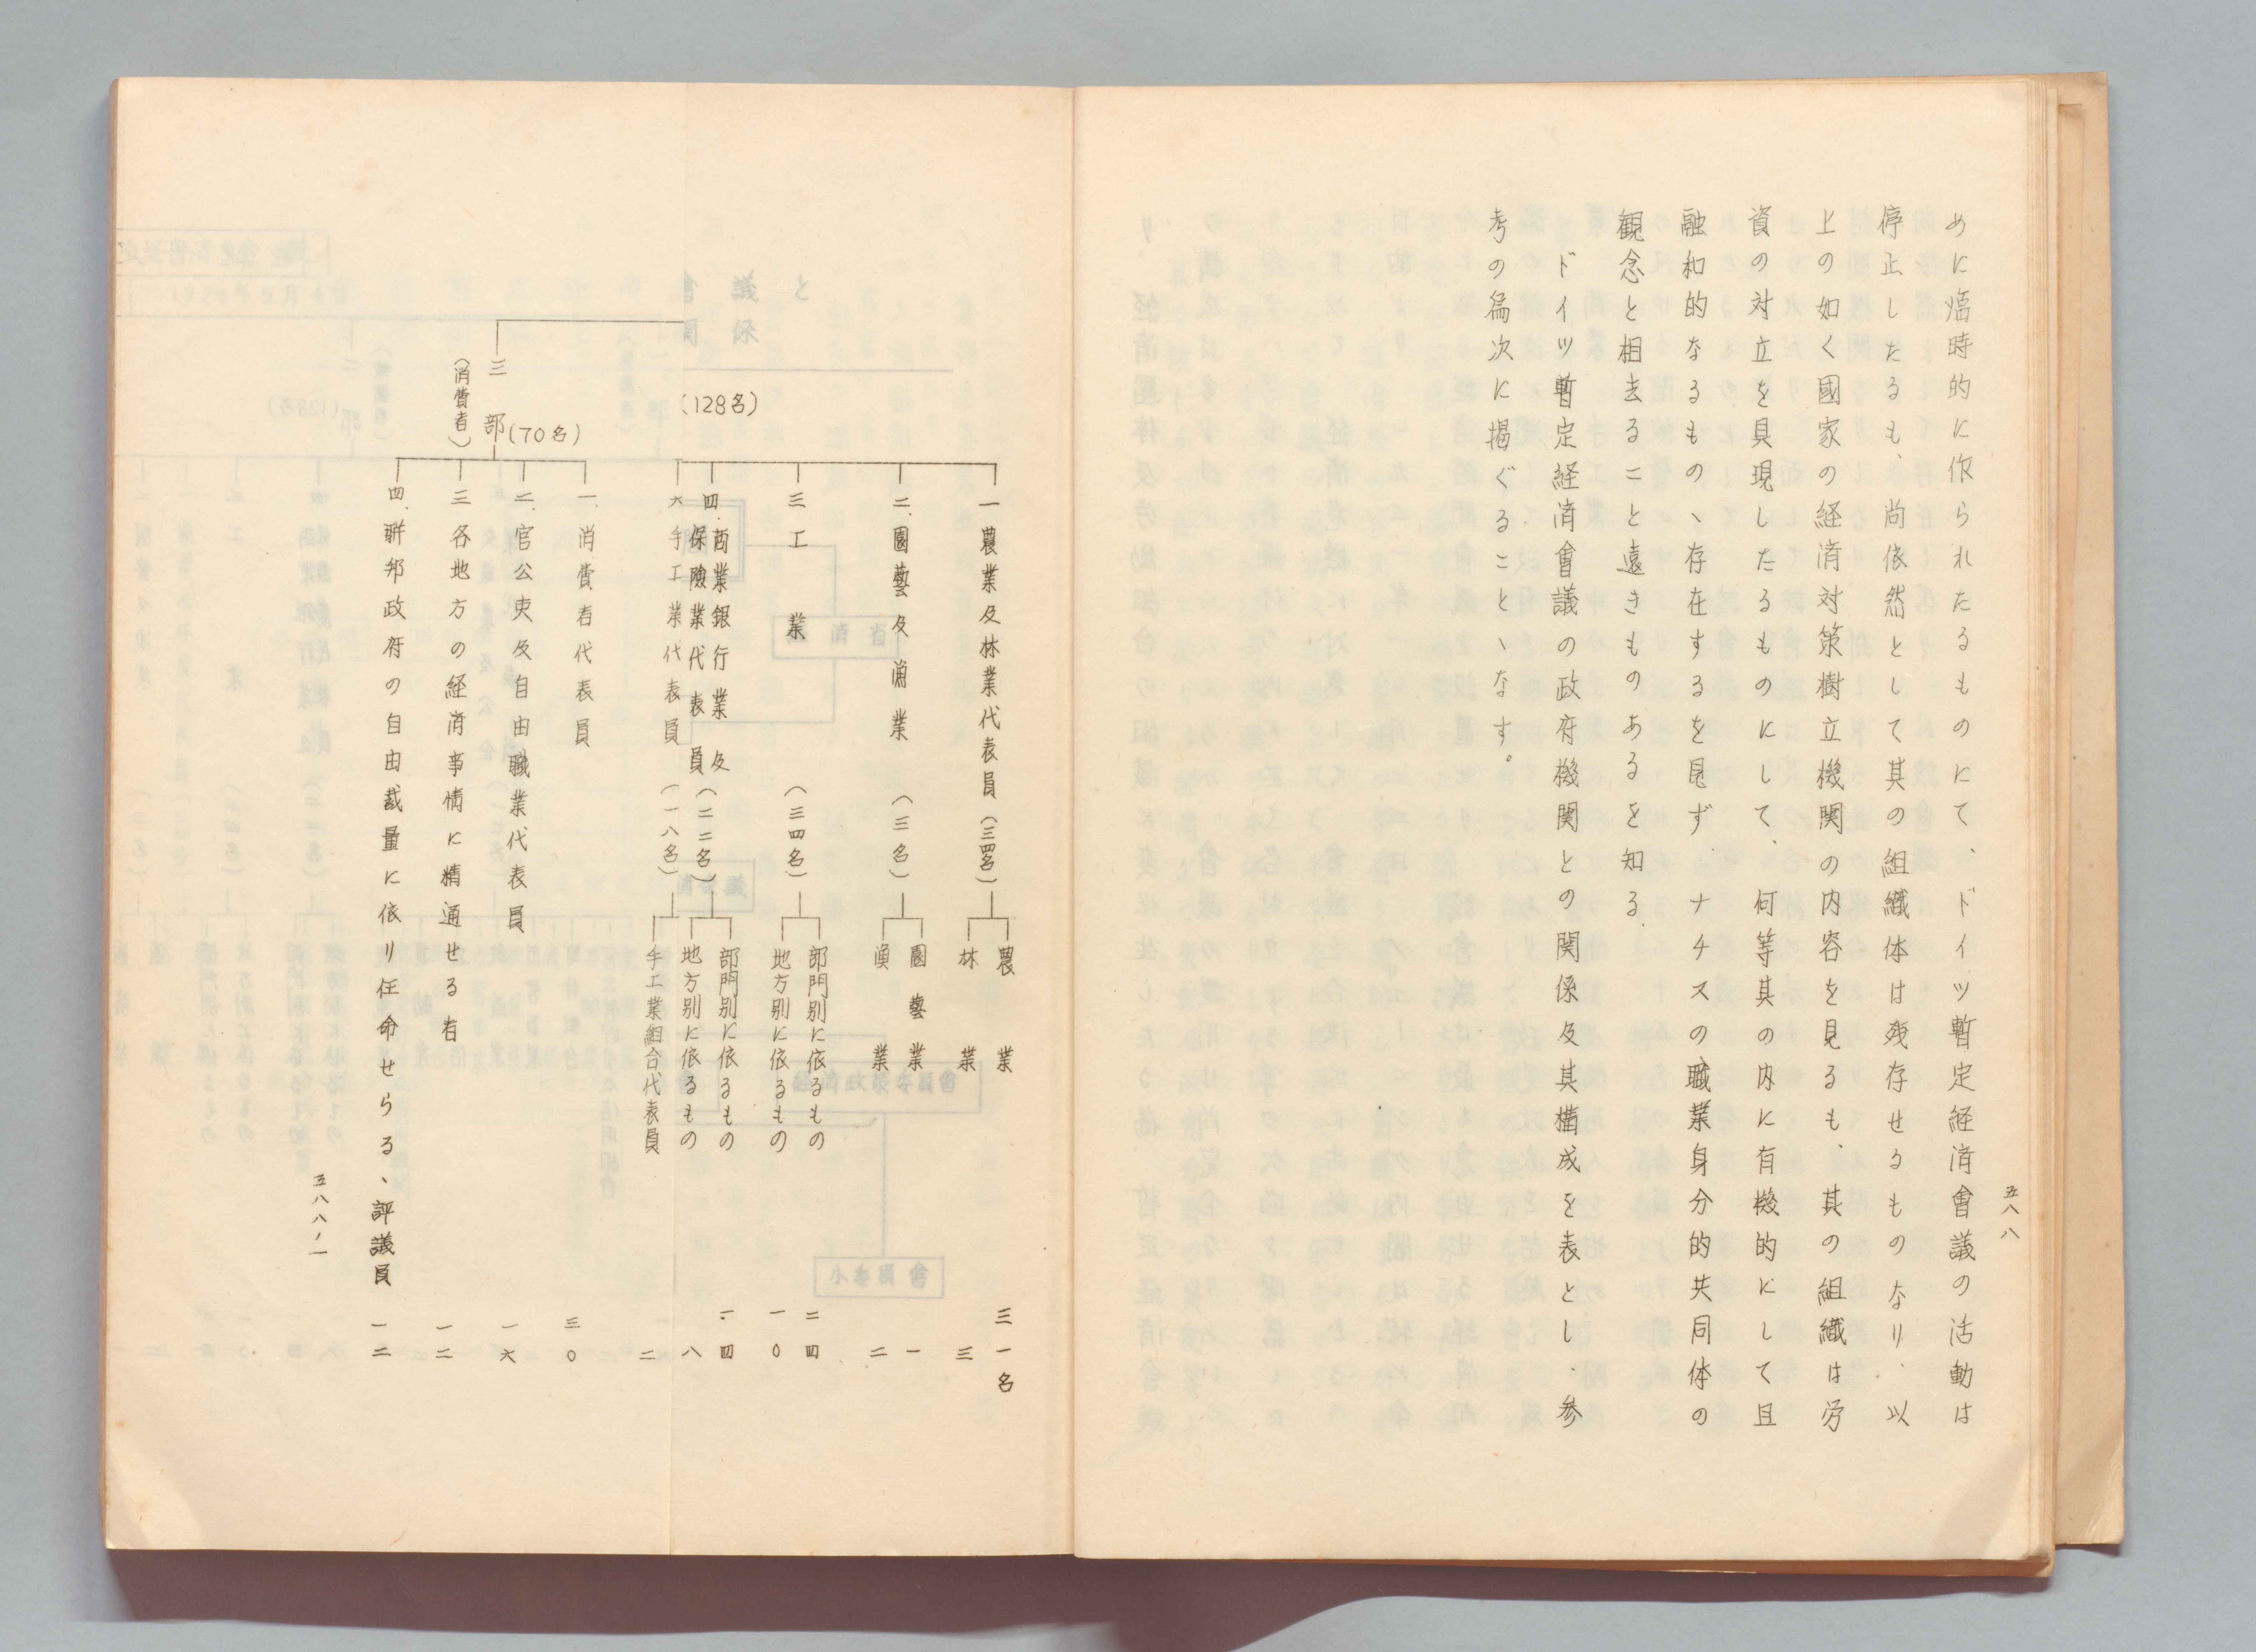 五八八
めに臨時的に作られたるものにて、ドイツ暫定経済會議の活動は
停止したるも、尚依然として其の組織体は残存せるものなり、以
上の如く國家の経済対策樹立機関の内容を見るも、其の組織は労
資の対立を具現したるものにして、何等其の内に有機的にして且
融和的なるものヽ存在するを見ず、ナチスの職業身分的共同体の
観念と相去ること遠きものあるを知る、
ドイツ暫定経済會議の政府機関との関係及其構成を表とし、参
考の為次に掲ぐることヽなす。
(128名)
一農業及林業代表員(三四名)
農業 三一名
林業 三
二、園藝及漁業(三名)
園藝業 一
漁業 二
三工業(三四名)
部門別に依るもの 二四
地方別に依るもの 一〇
四、商業銀行業及
保險業代表員(二二名)
部門別に依るもの 一四
地方別に依るもの 八
六手工業代表員(一八名)
手工業組合代表員 二
三部(70名)
(消費者)
一、消費者代表員 三〇
二、官公吏及自由職業代表員 一六
三各地方の経済事情に精通せる者 一二
四、聯邦政府の自由裁量に依り任命せらる、評議員 一二
五八八ノ一